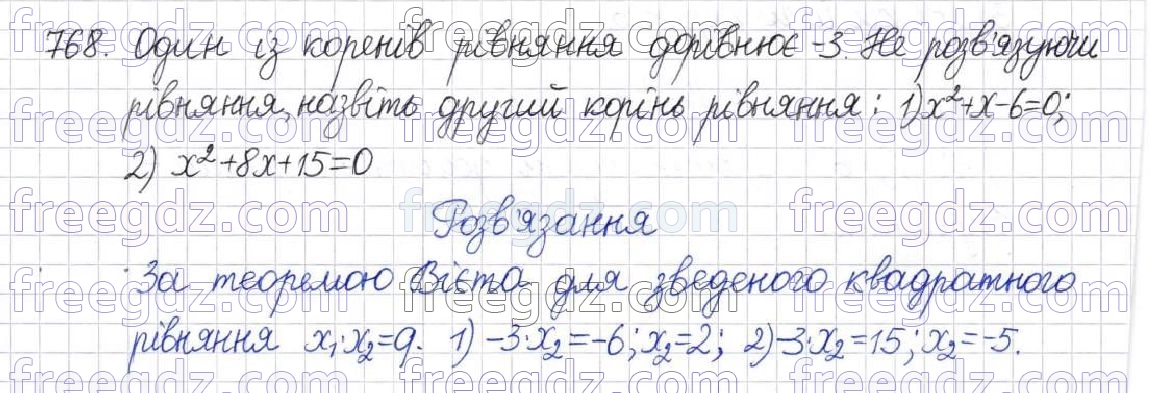 768. Один із коренів рівняння дорівнює -3. Не розв'язуючи
рівняння, назвіть другий корінь рівняння: 1) x²+x-6=0;
2) x²+8x+15=0
Розв'язання
За теоремою Вієта для зведеного квадратного
рівняння x₁·x₂=q. 1) -3·x₂=-6; x₂=2; 2) -3·x₂=15; x₂=-5.
freegdz.com